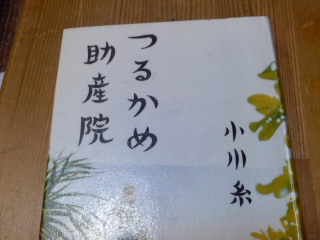 つるかめ
助産院
小川糸